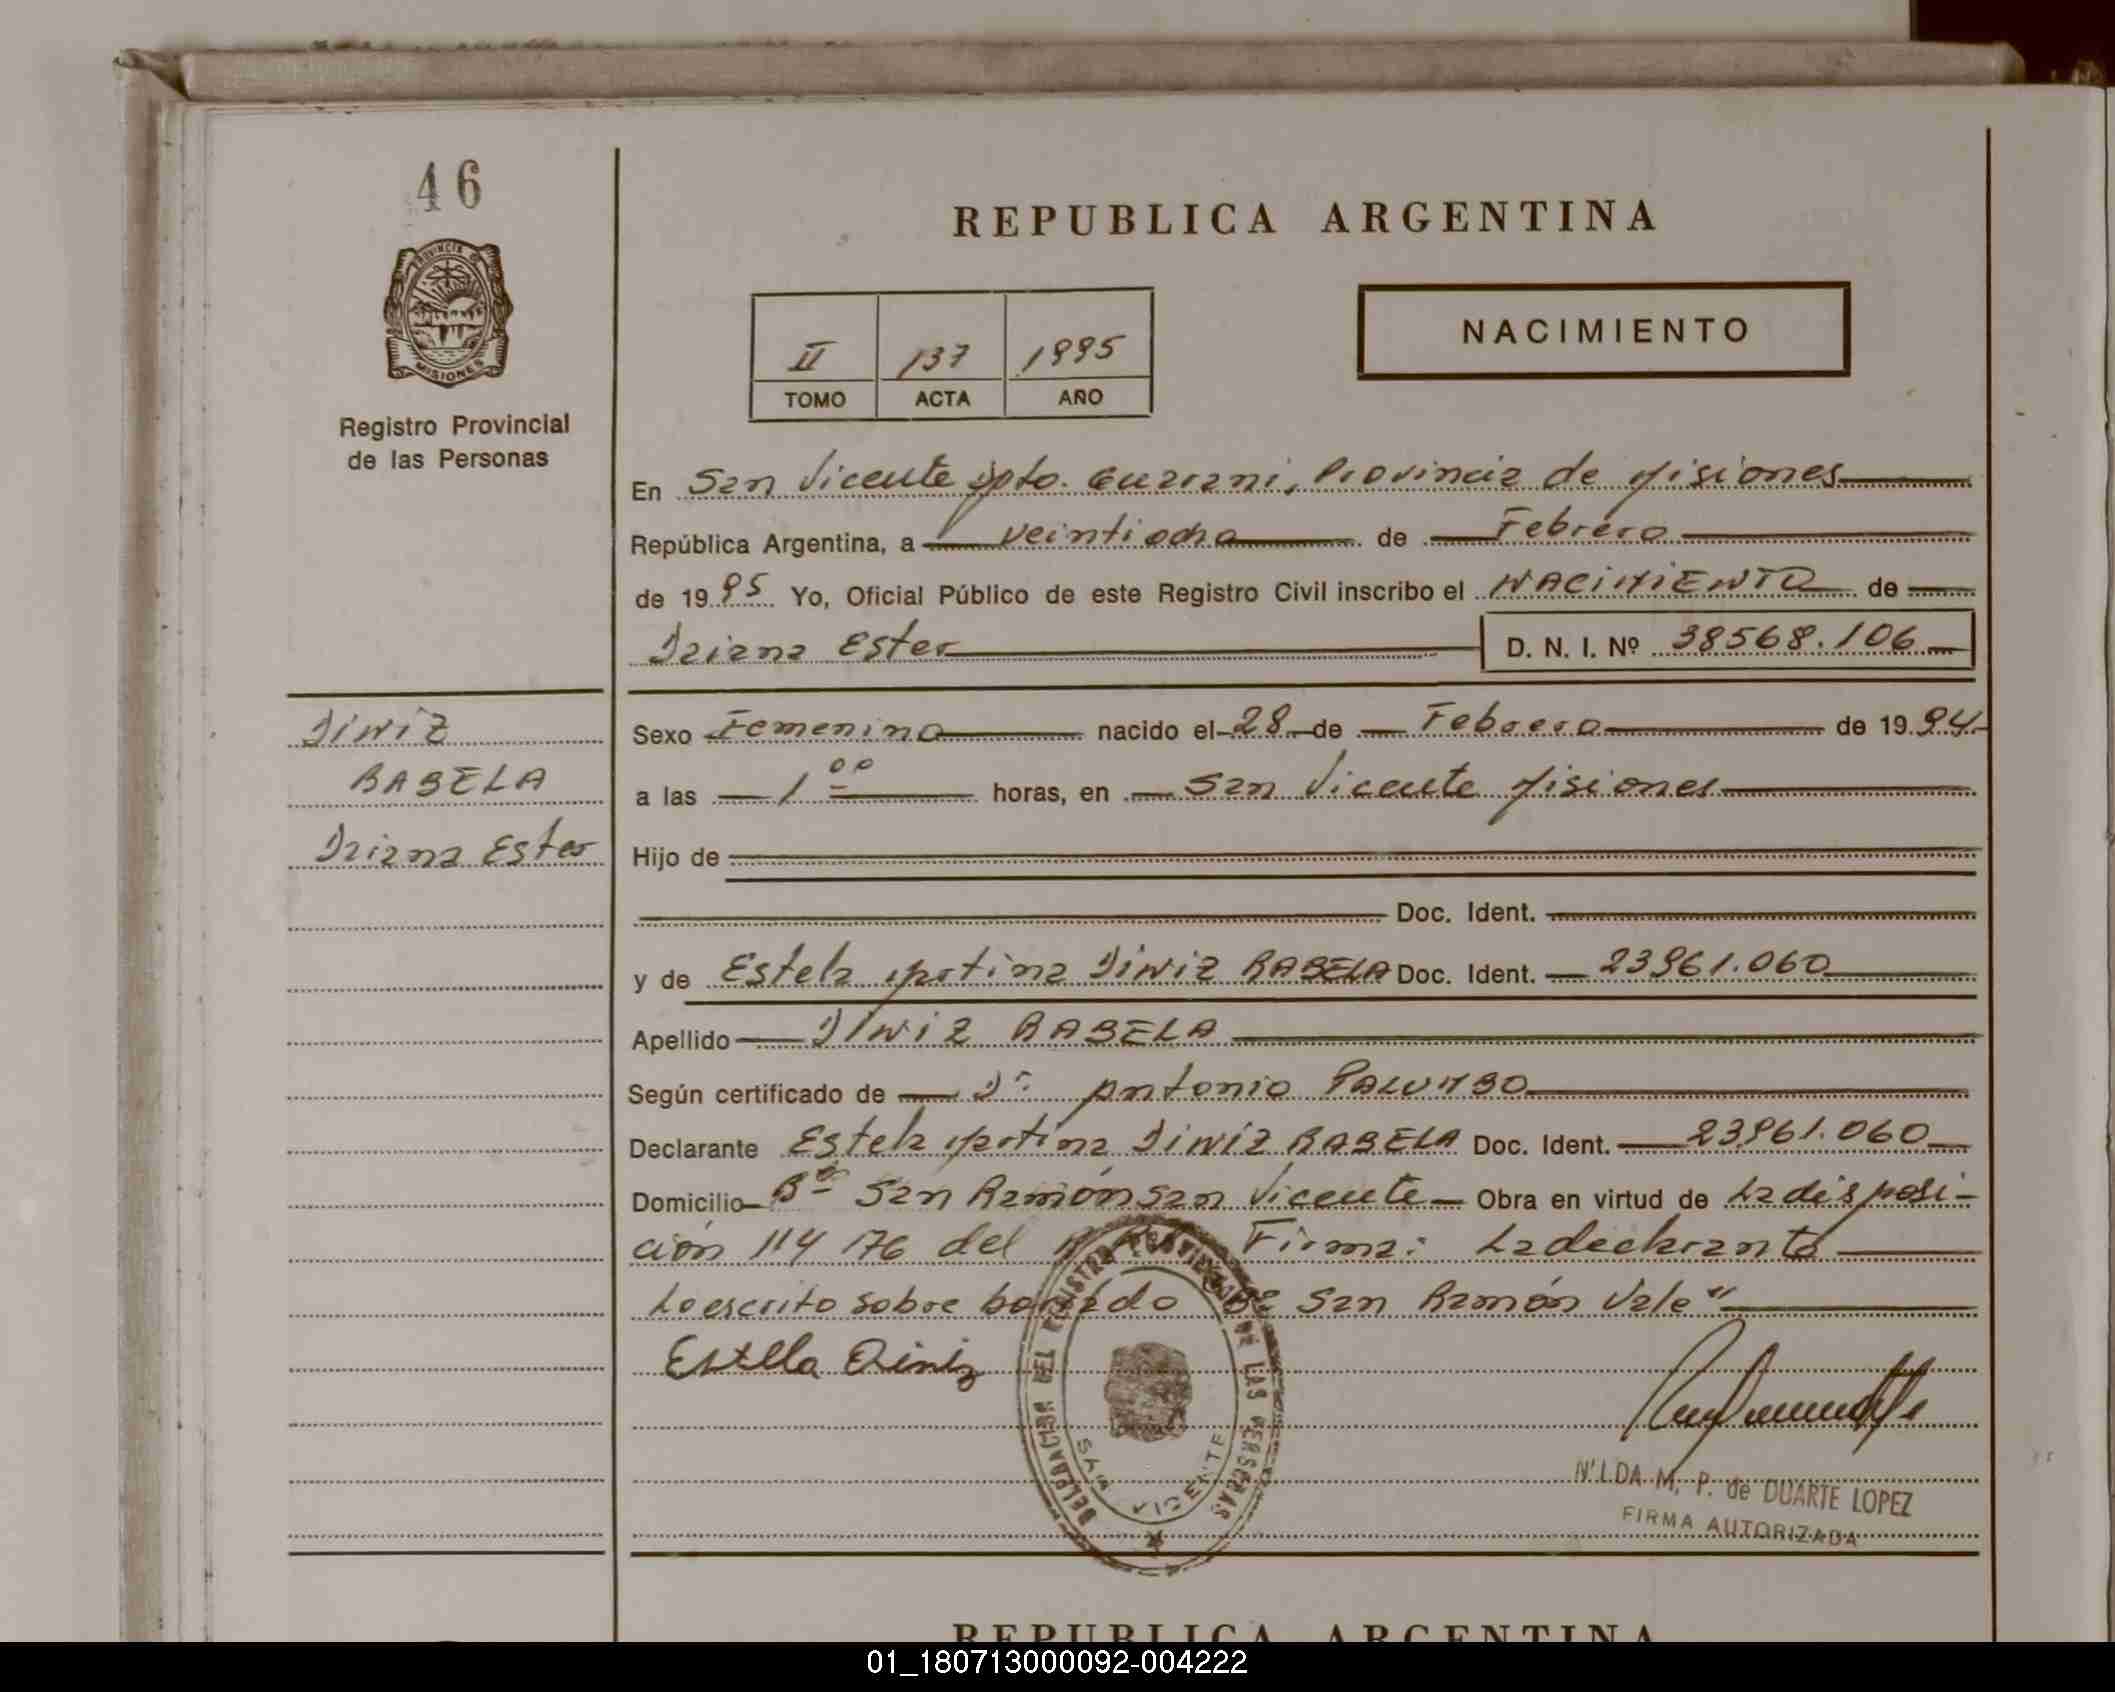 46
PROVINCIA DE
MISIONES
Registro Provincial
de las Personas
REPUBLICA ARGENTINA
II 137 1995
TOMO ACTA AÑO
NACIMIENTO
En San Vicente Dpto. Guarani, Provincia de Misiones
República Argentina, a veintiocho de Febrero
de 1995 Yo, Oficial Público de este Registro Civil inscribo el NACIMIENTO de
Daiana Ester D. N. I. Nº 38568.106
DINIZ
RABELA
Daiana Ester
Sexo Femenino nacido el 28 de Febrero de 1994
a las 1 00 horas, en San Vicente Misiones
Hijo de
Doc. Ident.
y de Estela Martina DINIZ RABELA Doc. Ident. 23961.060
Apellido DINIZ RABELA
Según certificado de Dr. Antonio PALUMBO
Declarante Estela Martina DINIZ RABELA Doc. Ident. 23961.060
Domicilio Bº San Ramón San Vicente Obra en virtud de La disposi-
ción 114/76 del Firma: La declarante
Lo escrito sobre borrado "Bº San Ramón Vale"
Estella Diniz
DELEGACION DEL REGISTRO PROVINCIAL DE LAS PERSONAS
SAN VICENTE
NILDA M. P. de DUARTE LOPEZ
FIRMA AUTORIZADA
REPUBLICA ARGENTINA
01_180713000092-004222